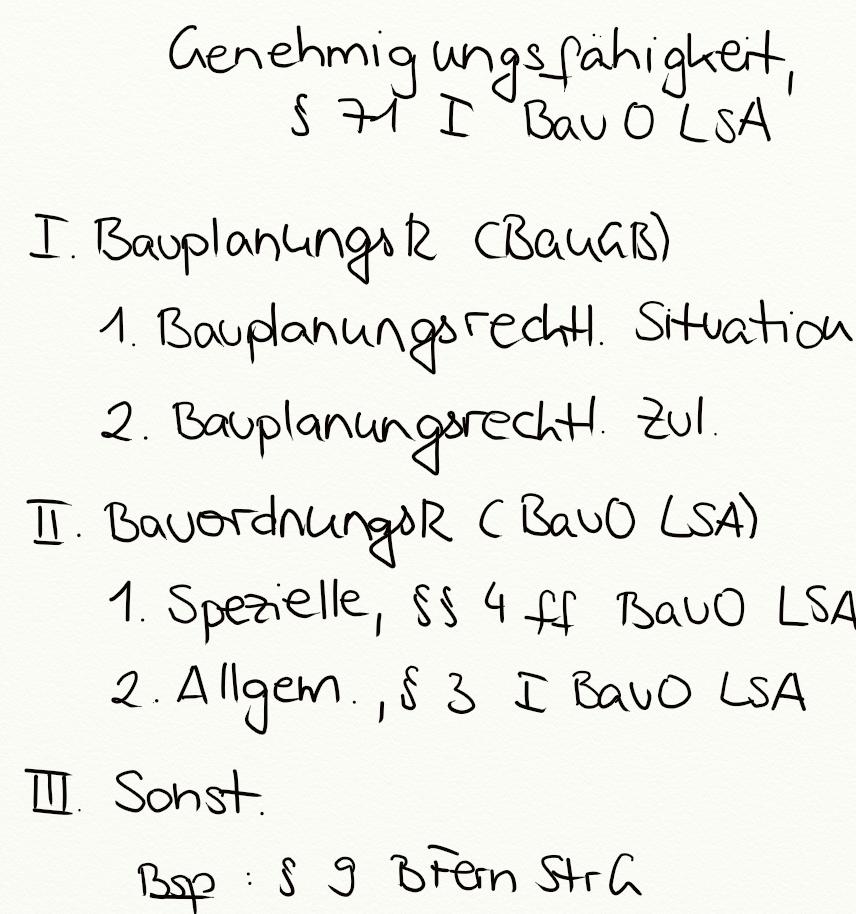 Genehmigungsfähigkeit,
§ 71 I BauO LSA
I. BauplanungsR (BauGB)
1. Bauplanungsrechtl. Situation
2. Bauplanungsrechtl. Zul.
II. BauordnungsR (BauO LSA)
1. Spezielle, §§ 4 ff BauO LSA
2. Allgem., § 3 I BauO LSA
III. Sonst.
Bsp: § 9 BFernStrG